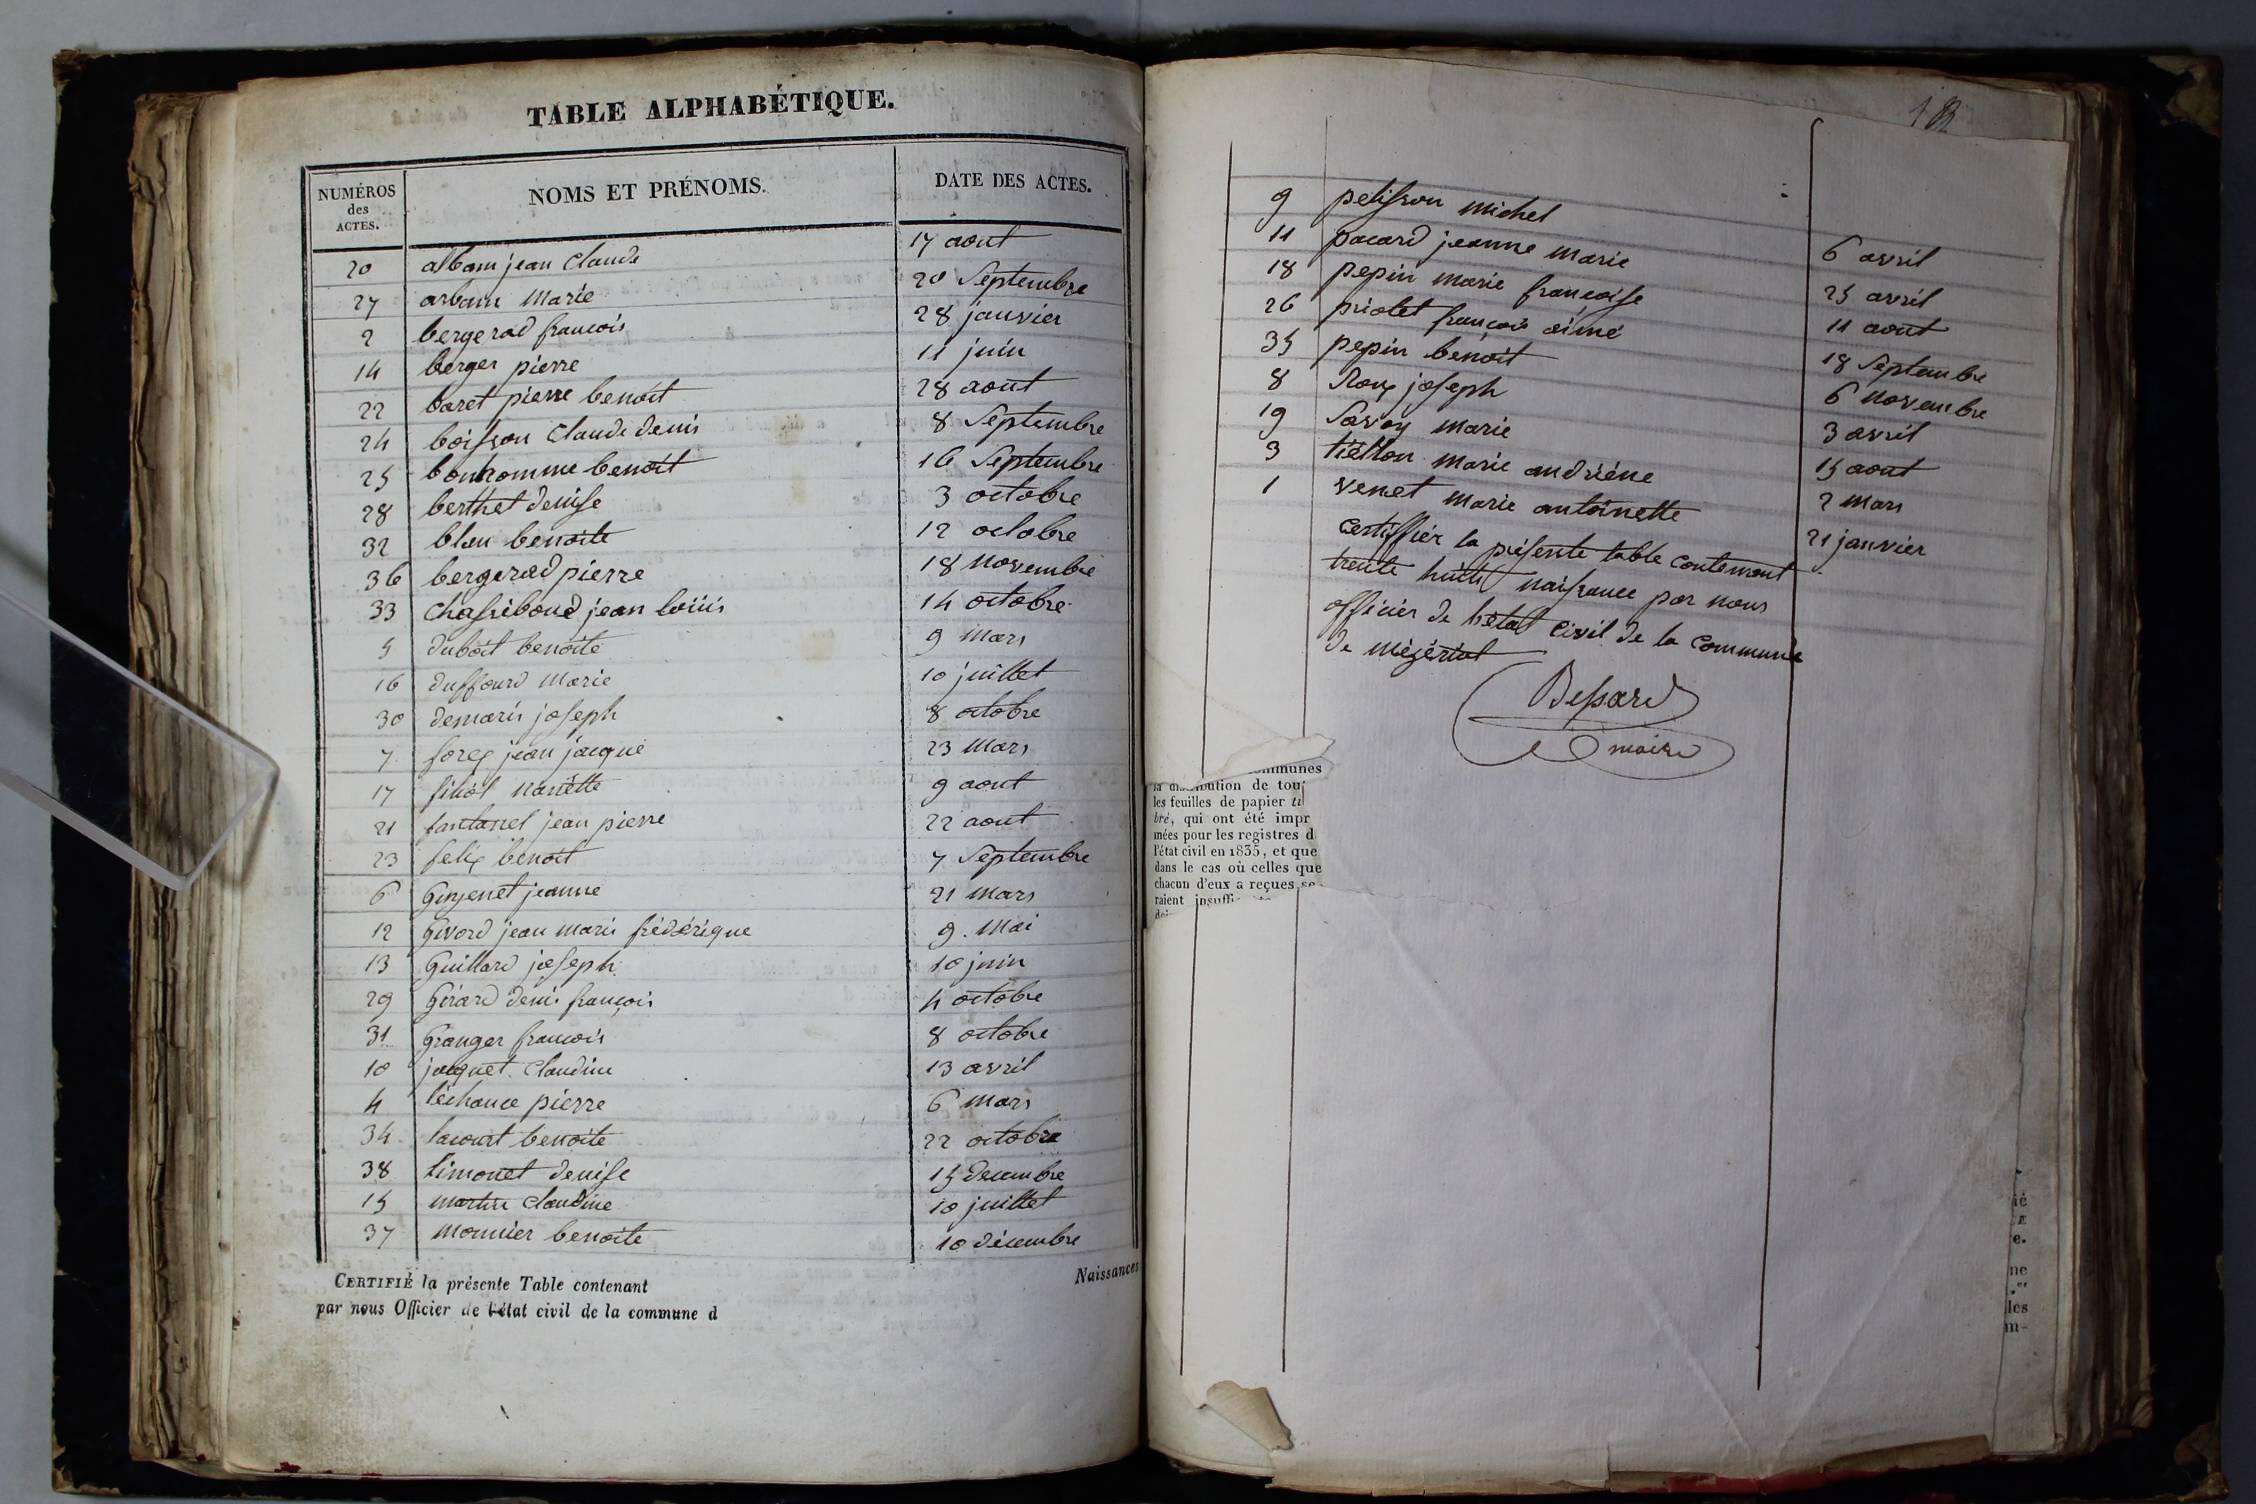 TABLE ALPHABÉTIQUE.
NUMÉROS des ACTES. NOMS ET PRÉNOMS. DATE DES ACTES.
20 albam jean claude 17 aout
27 arbam marie 20 Septembre
2 bergerad francois 28 janvier
14 berger pierre 11 juin
22 baret pierre benoit 28 aout
24 boisson claude denis 8 Septembre
25 bonhomme benoit 16 Septembre
28 berthet denise 3 octobre
32 bleu benoite 12 octobre
36 bergerad pierre 18 novembre
33 chassiboud jean loüis 14 octobre
5 duboit benoite 9 mars
16 duffourd marie 10 juillet
30 demaris joseph 8 octobre
7 forey jean jacque 23 mars
17 nanètte 9 aout
21 fantanel jean pierre 22 aout
23 felix benoit 7 Septembre
6 Ginjenet jeanne 21 mars
12 Givord jean marie frédérique 9. Mai
13 Guillard joseph 10 juin
29 Girard denis françois 4 octobre
31 Granger francois 8 octobre
10 jacquet claudine 13 avril
4 léchance pierre 6 mars
34 lacourt benoite 22 octobre
38 limonet denise 15 decembre
15 martin claudine 10 juillet
37 monnier benoite 10 décembre
CERTIFIÉ la présente Table contenant Naissances
par nous Officier de l'état civil de la commune d
18
9 pelisson michel 6 avril
11 pacard jeanne marie 25 avril
18 pepin marie françoise 11 aout
26 priolet françois aimé 18 Septembre
35 pepin benoit 6 novembre
8 Roux joseph 3 avril
19 Savoy marie 15 aout
3 marie andriène 2 mars
1 venet marie antoinette 21 janvier
certiffier la présente table contenant
trente huit naissance par nous
officier de l'état civil de la commune
de mézériat
Bessard
maire
communes
la distribution de tou
les feuilles de papier ti
bré, qui ont été impr
mées pour les registres d
l'état civil en 1835, et que
dans le cas où celles que
chacun d'eux a reçues se
raient insuffi
ié
e.
ne
les
m-